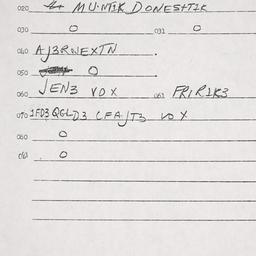 020 MUNTIK DONESTIK
030 0 031 0
040 AJ3RWEXTN.
050 0.
060 JEN3 VOX 061 FRIRIK3
070 1FD3QGLD3 CFAJT3 VOX
060 0
060 0